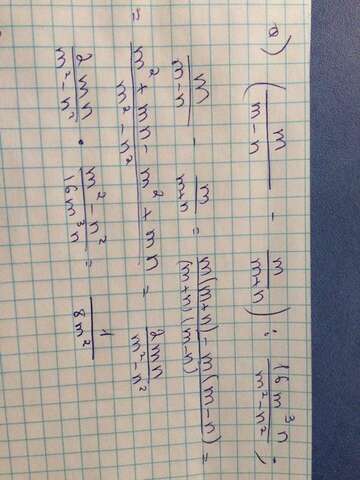 а) (m/(m-n) - m/(m+n)) : 16m³n/(m²-n²) ;
m/(m-n) - m/(m+n) = (m(m+n) - m(m-n))/((m+n)(m-n)) =
= (m² + mn - m² + mn)/(m² - n²) = 2mn/(m²-n²)
2mn/(m²-n²) · (m²-n²)/(16m³n) = 1/(8m²)